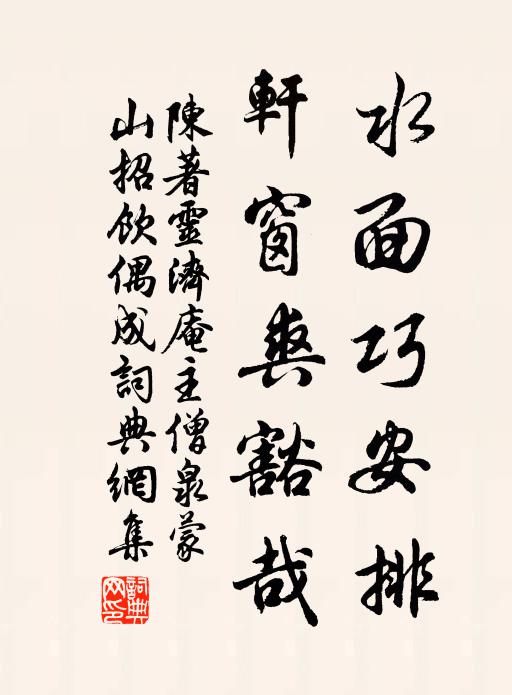 水面巧安排
軒窗爽豁哉
陳著靈濟庵主僧泉蒙
山招飲偶成詞典網集
詞典網印